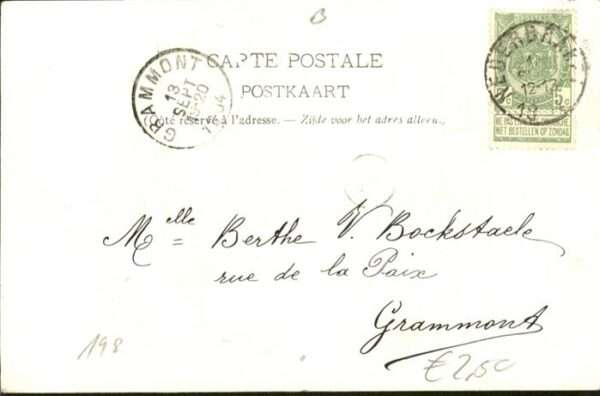 B
CARTE POSTALE
POSTKAART
Côté réservé à l'adresse. — Zijde voor het adres alleen.
GRAMMONT
13
SEPT
04
NEDERBRAKEL
12-
13
5c
NE PAS LIVRER LE DIMANCHE
NIET BESTELLEN OP ZONDAG
Melle Berthe V. Bockstaele
rue de la Paix
Grammont
198
€2,50